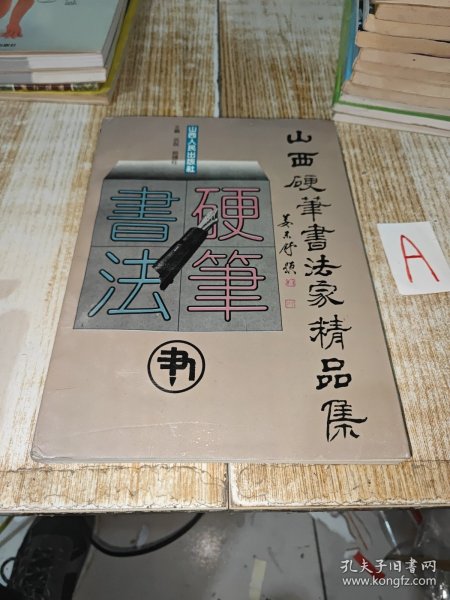 山西硬笔書法家精品集
姜东舒题
山西人民出版社
主编
硬筆
書法
A
孔夫子旧书网
www.kongfz.com